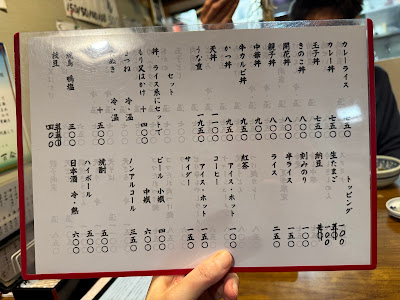 カレーライス
カレー丼 七五〇
玉子丼 七五〇
きのこ丼 八〇〇
開花丼 八〇〇
親子丼 八〇〇
中華丼 九〇〇
牛カルビ丼 九五〇
かつ丼 九五〇
天丼 一一〇〇
うな重 一九五〇
セット
丼、ライス系にセットで
もり又はかけ
冷・温
冷・温 五〇
三〇〇
枝豆
トッピング
生たまご 一〇〇
納豆
刻みのり 一〇〇
半ライス 一五〇
ライス 二五〇
紅茶
アイス・ホット 一〇〇
コーヒー
アイス・ホット 一五〇
サイダー 一五〇
ビール 小瓶 四〇〇
中瓶 六〇〇
ノンアルコール 三五〇
焼酎 五〇〇
ハイボール 五〇〇
日本酒 冷・熱 六〇〇